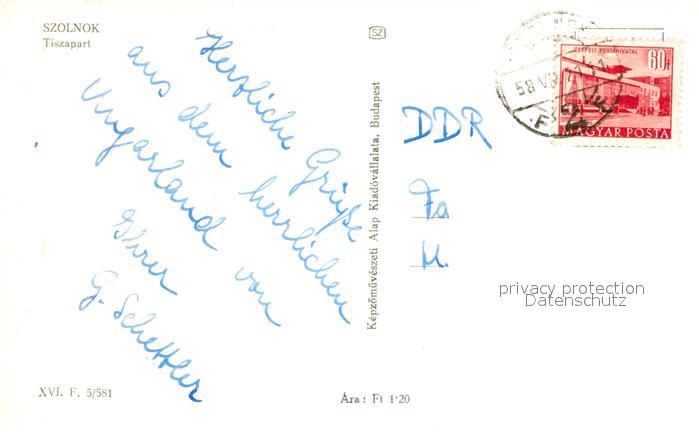 SZOLNOK
Tiszapart
Herzliche Grüße
aus dem herrlichen
Ungarland von
Ihrer
G. Schettler
XVI. F. 5/581
Ára: Ft 1·20
SZ
Képzőművészeti Alap Kiadóvállalata, Budapest
DDR
Fa
M.
CSEPELI POSTAHIVATAL
60f
MAGYAR POSTA
58 VII
privacy protection
Datenschutz